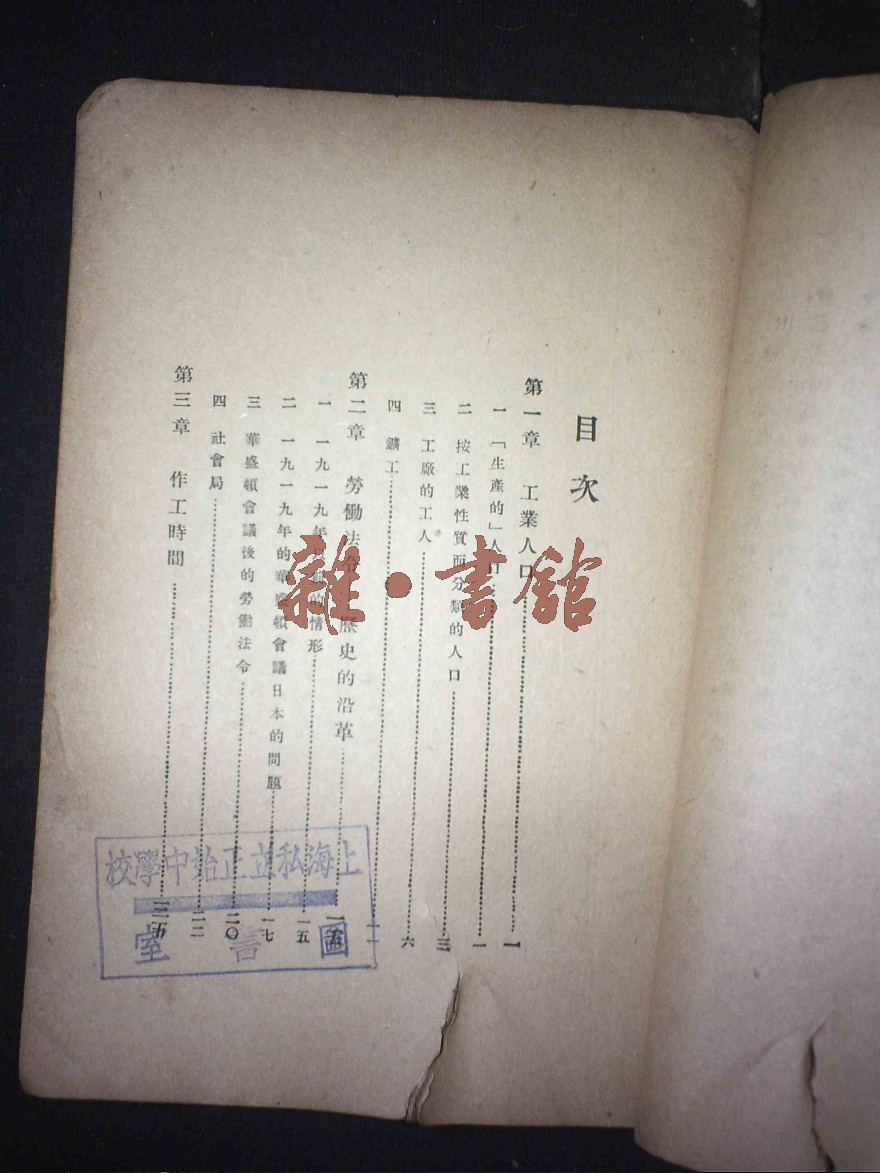 目次
第一章 工業人口……一
一 「生產的」人口……一
二 按工業性質而分類的人口……三
三 工廠的工人……六
四 鑛工……一一
第二章 勞働法令 歷史的沿革……一五
一 一九一九年以前的情形……一五
二 一九一九年的華盛頓會議日本的問題……一七
三 華盛頓會議後的勞働法令……二〇
四 社會局……二二
第三章 作工時間……二五
雜·書館
上海私立正始中學校
圖書室